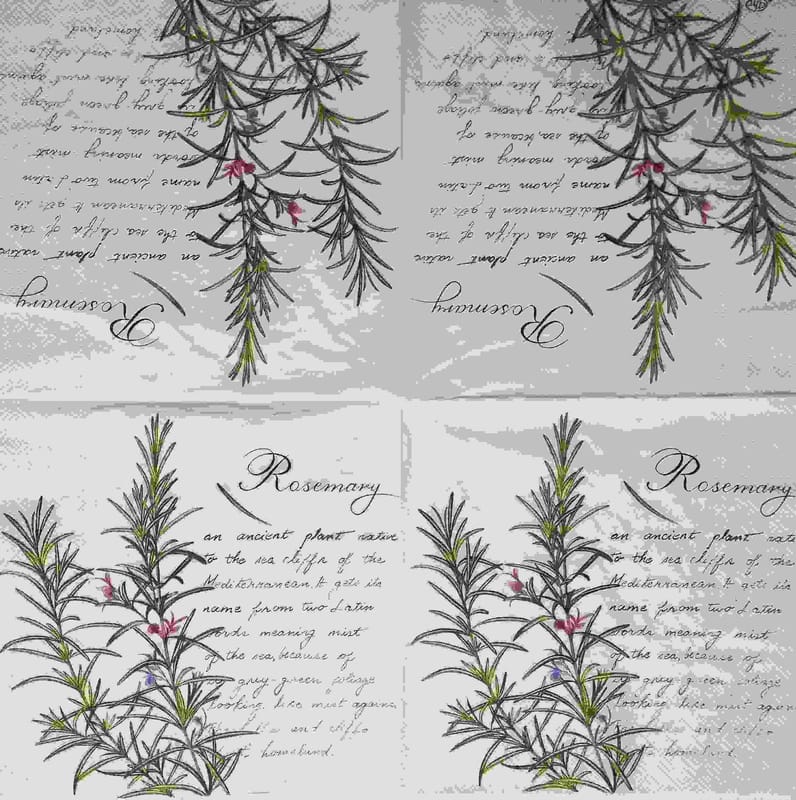 Rosemary
an ancient plant native
to the sea cliffs of the
Mediterranean. It gets its
name from two Latin
words meaning mist
of the sea, because of
grey-green foliage
looking like mist against
and cliffs
homeland.
Rosemary
an ancient plant native
to the sea cliffs of the
Mediterranean. It gets its
name from two Latin
words meaning mist
of the sea, because of
grey-green foliage
looking like mist again
and cliffs
homeland.
Rosemary
an ancient plant native
to the sea cliffs of the
Mediterranean. It gets its
name from two Latin
words meaning mist
of the sea, because of
grey-green foliage
looking like mist agains
and cliffs
homelund.
Rosemary
an ancient plant nate
to the sea cliffs of the
Mediterranean. It gets its
name from two Latin
words meaning mist
of the sea, because of
grey-green foliage
looking like mist again
and cliffs
homelund.